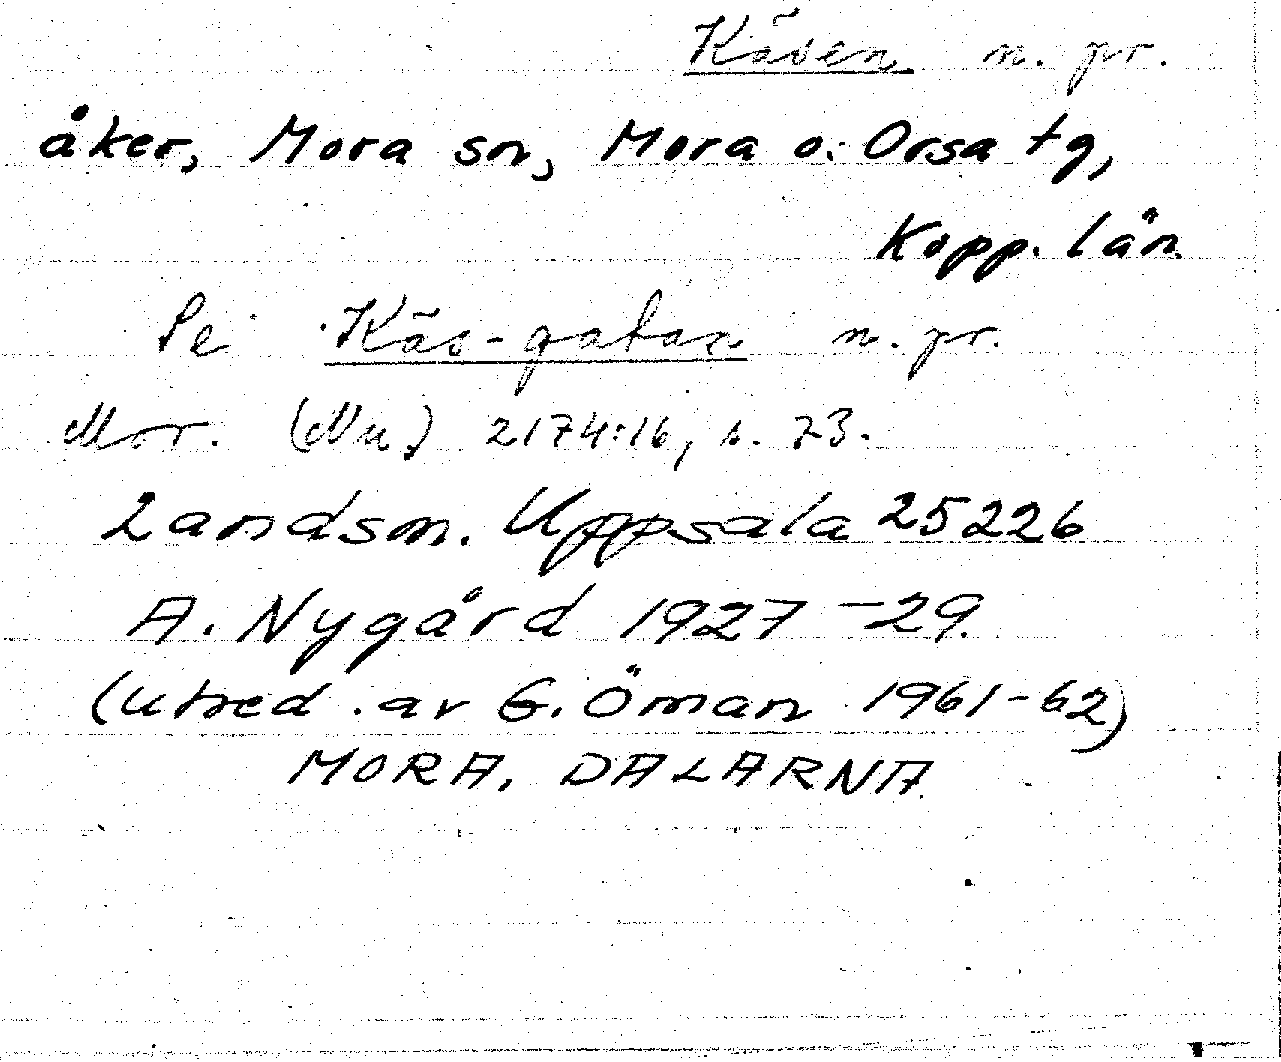 Käsen n. pr.
åker, Mora sn, Mora o. Orsa tg,
Kopp. län.
Se Käs-gatan n. pr.
Mor. (Nu.) 2174:16, s. 73.
Landsm. Uppsala 25226
A. Nygård 1927-29.
(utred. av G. Öman 1961-62)
MORA, DALARNA.